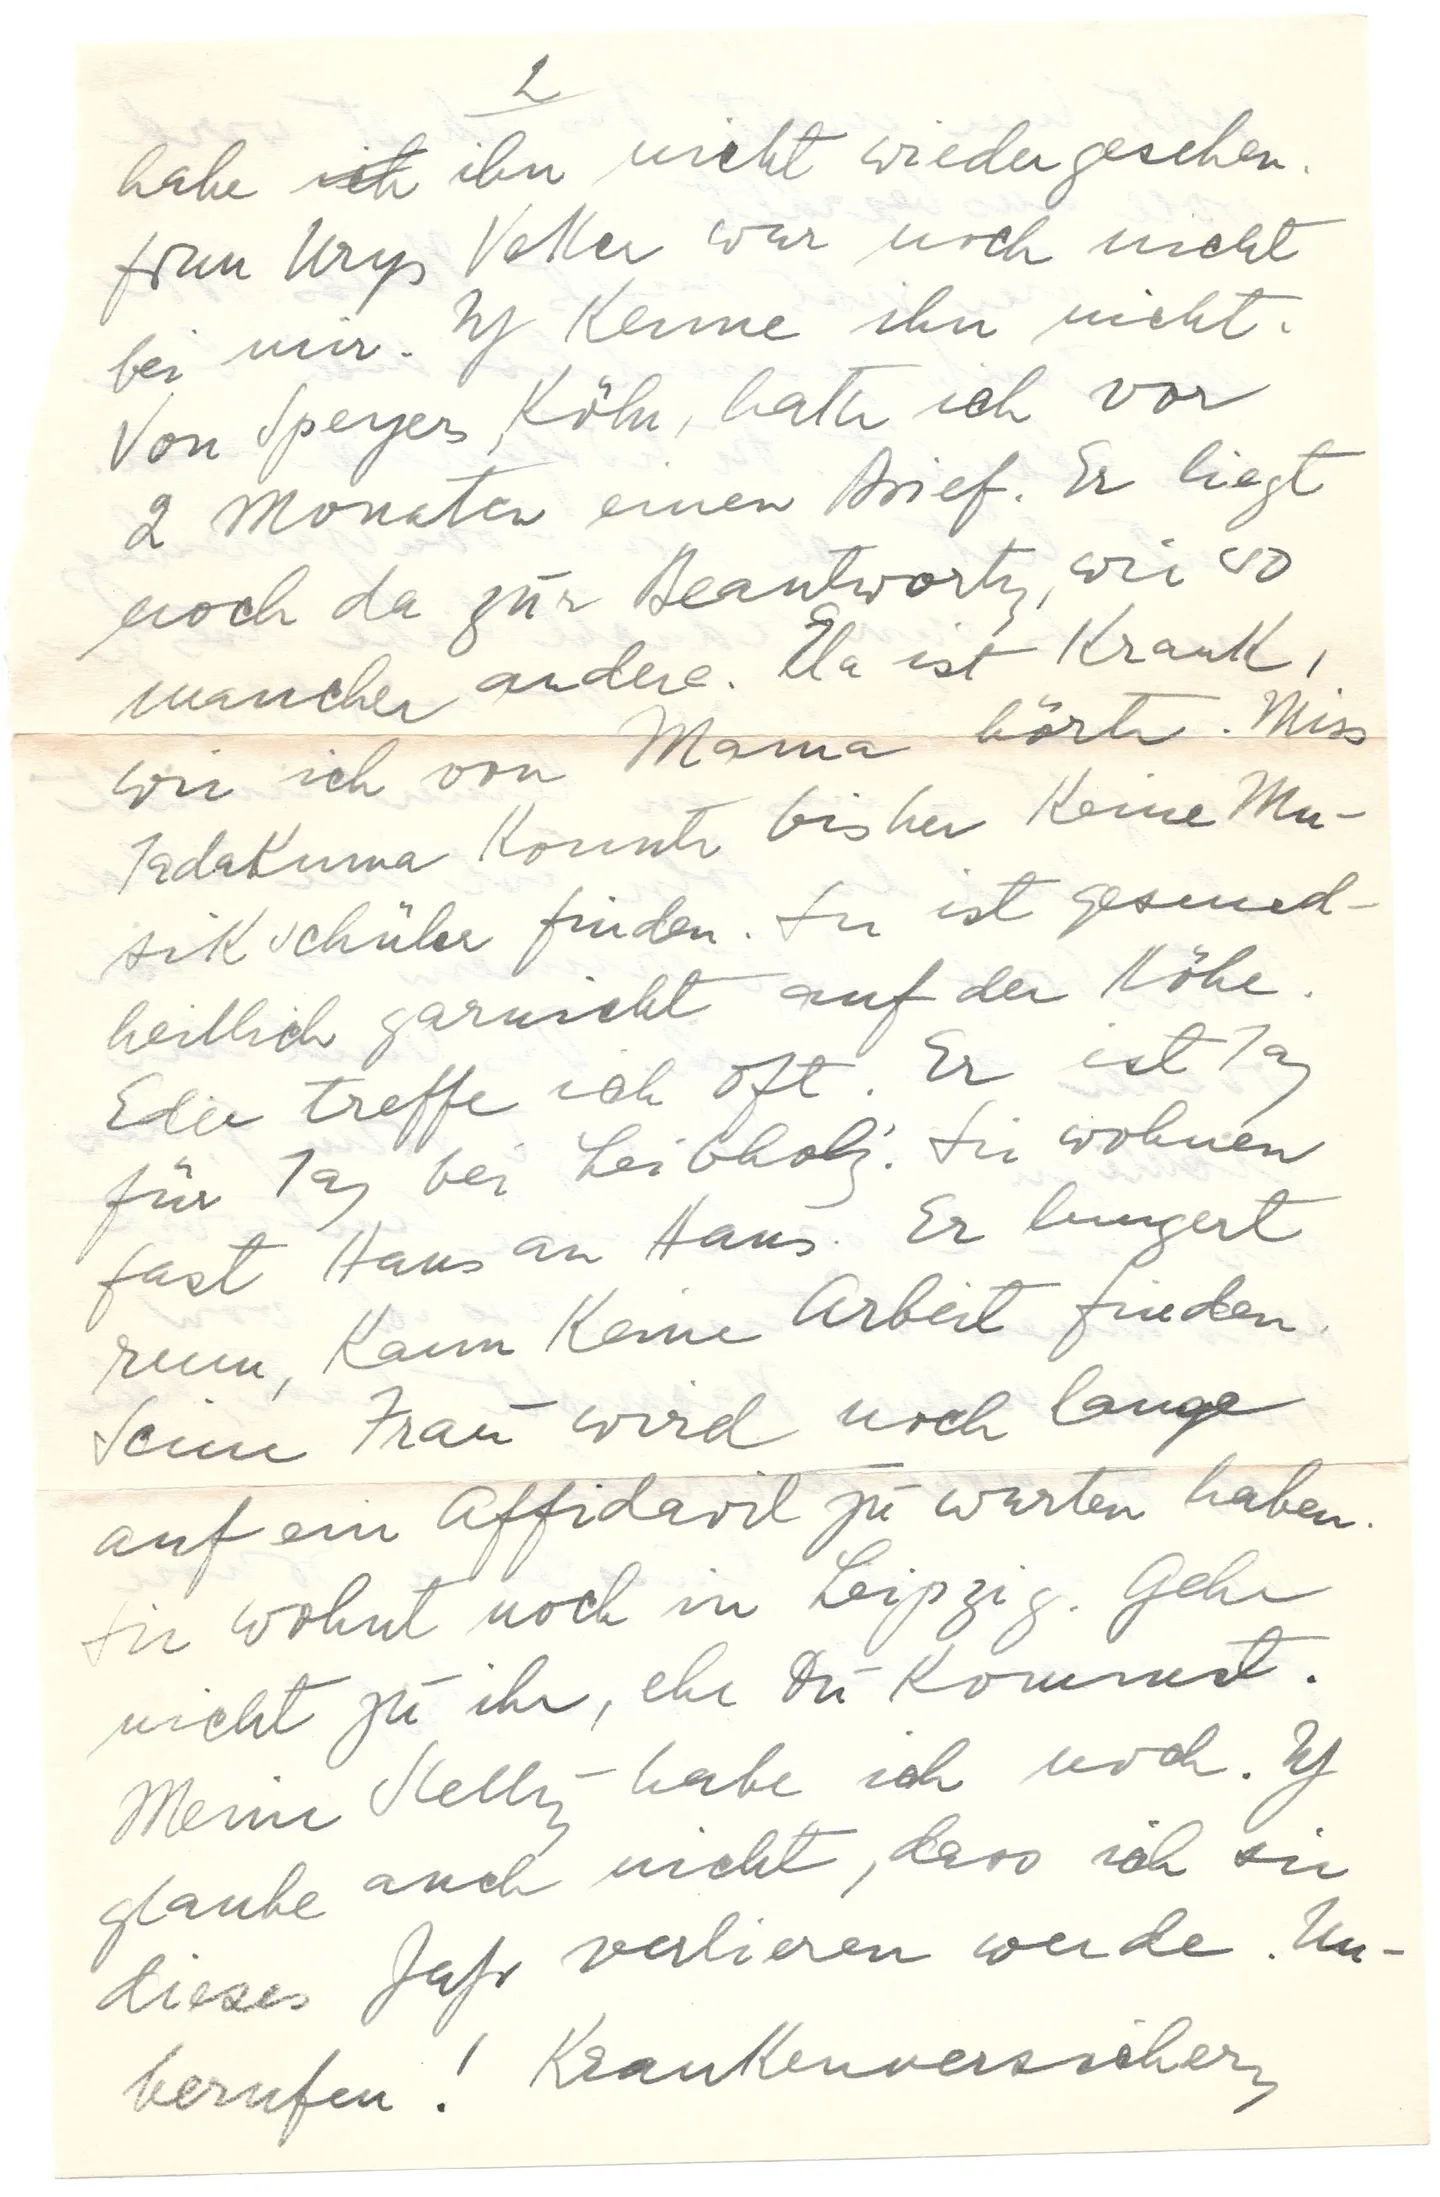 2
habe ich ihn nicht wiedergesehen.
Frau Urys Vetter war noch nicht
bei mir. Ich kenne ihn nicht.
Von Speyers, Köln, hatte ich vor
2 Monaten einen Brief. Er liegt
noch da zur Beantwortg, wie so
mancher andere. Ela ist krank,
wie ich von Mama hörte. Miss
Tadakuma konnte bisher keine Mu-
sikschüler finden. Sie ist gesund-
heitlich garnicht auf der Höhe.
Eder treffe ich oft. Er ist Tag
für Tag bei Leibholz. Sie wohnen
fast Haus an Haus. Er lungert
rum, kann keine Arbeit finden.
Seine Frau wird noch lange
auf ein Affidavit zu warten haben.
Sie wohnt noch in Leipzig. Gehe
nicht zu ihr, ehe Du kommst.
Meine Stellg habe ich noch. Ich
glaube auch nicht, dass ich sie
dieses Jahr verlieren werde. Un-
berufen! Krankenversicherg